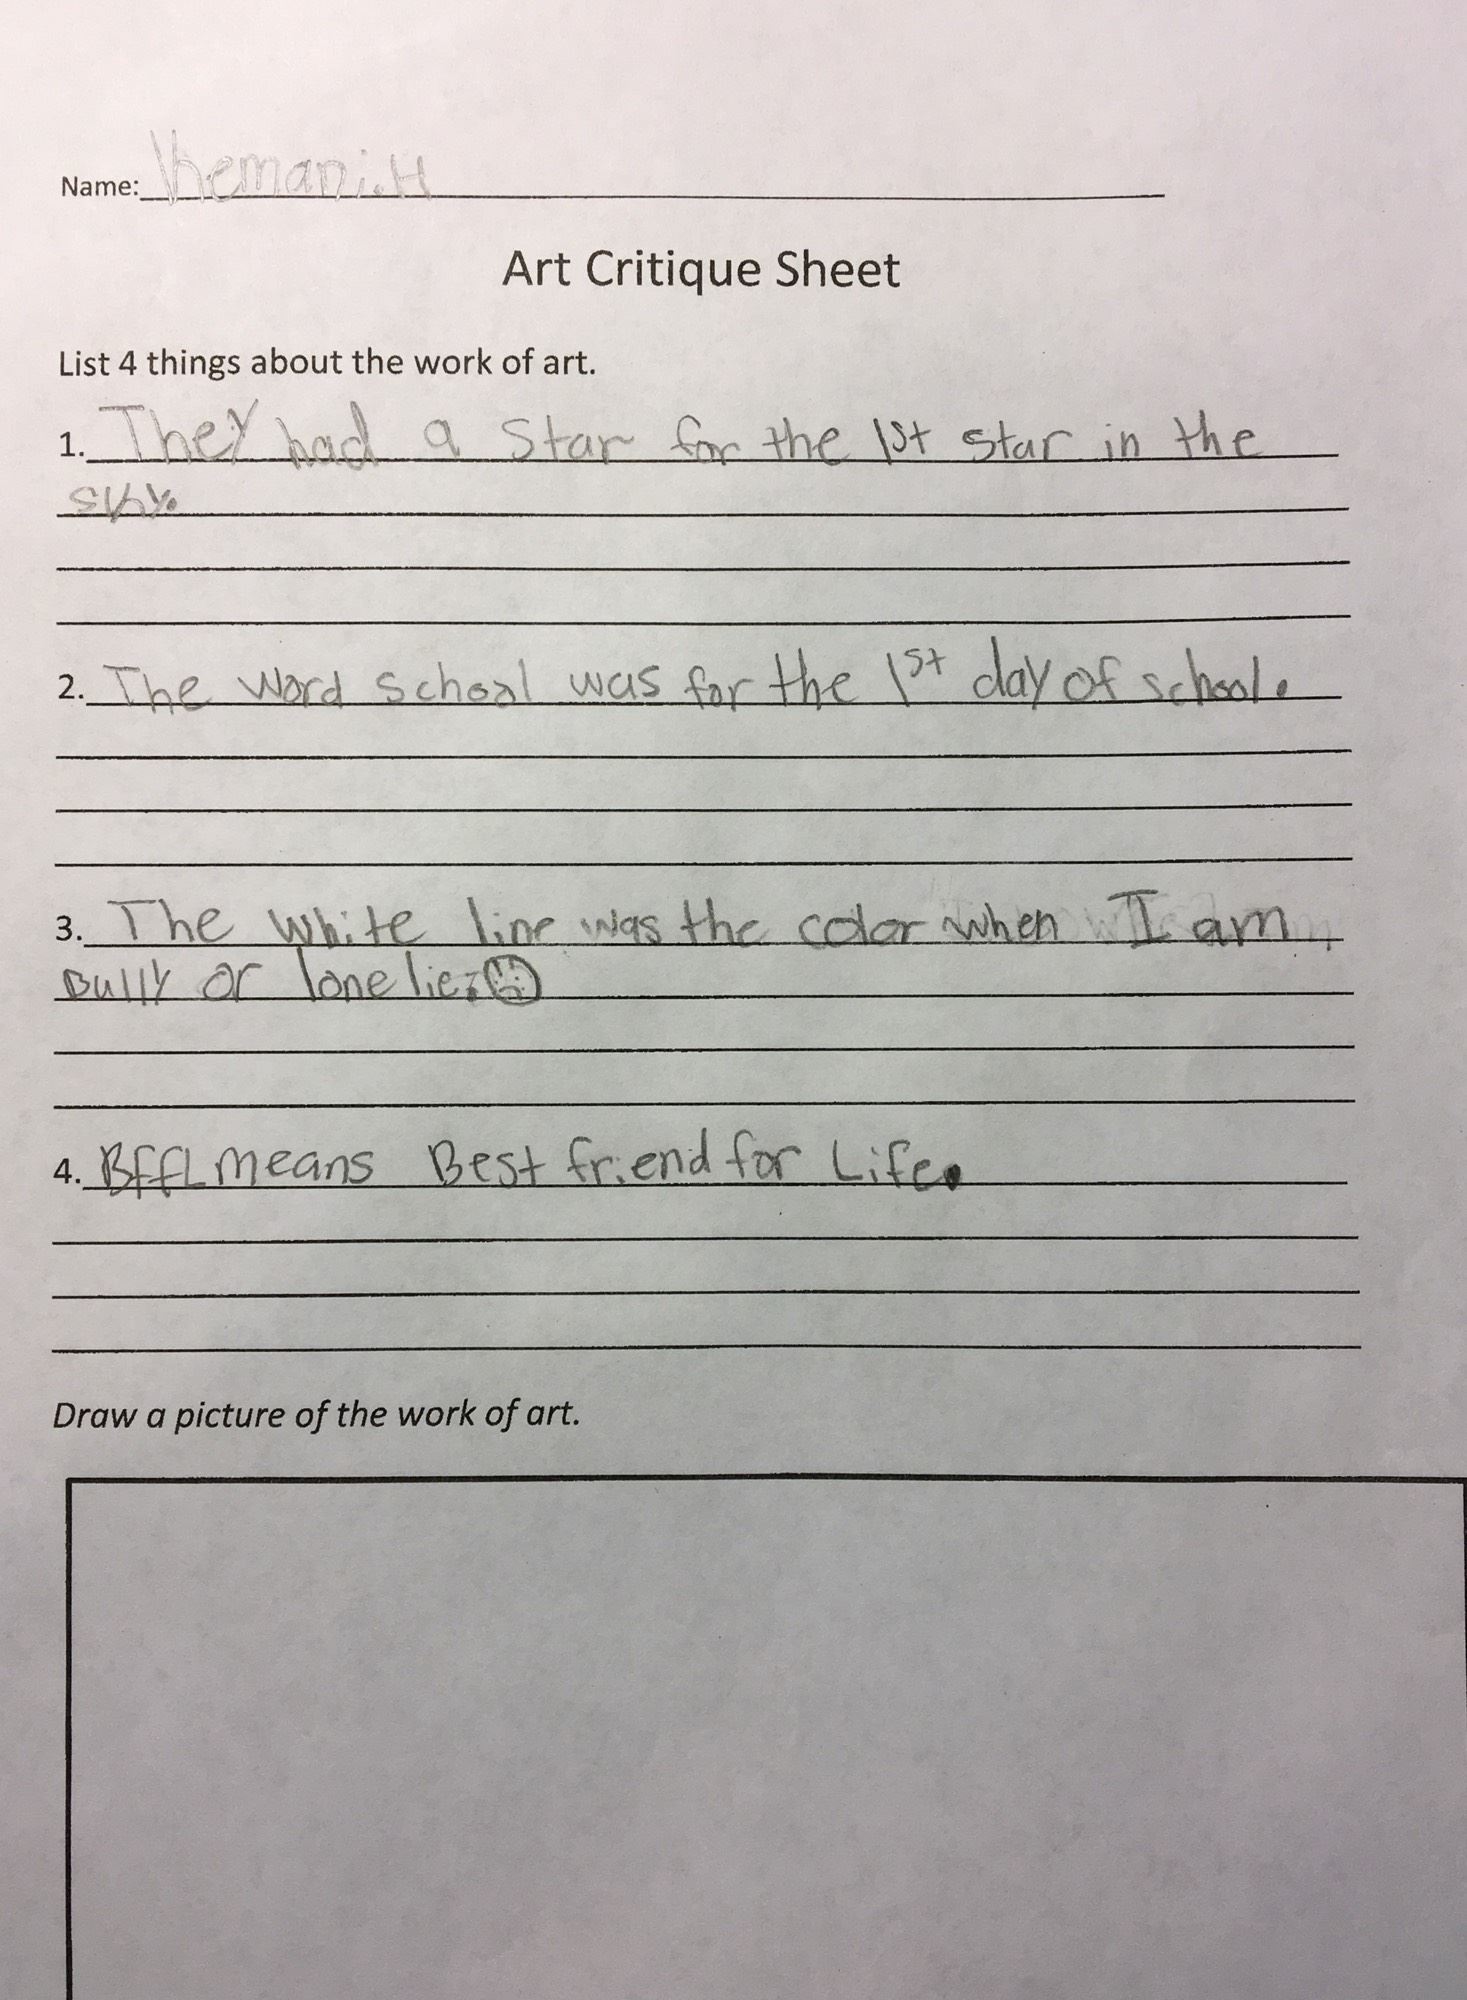 Name: Jhemani.H
Art Critique Sheet
List 4 things about the work of art.
1. They had a Star for the 1st star in the
sky.
2. The word school was for the 1st day of school.
3. The white line was the color when I am
Bully or lonelie.
4. BFFL means Best friend for Life.
Draw a picture of the work of art.